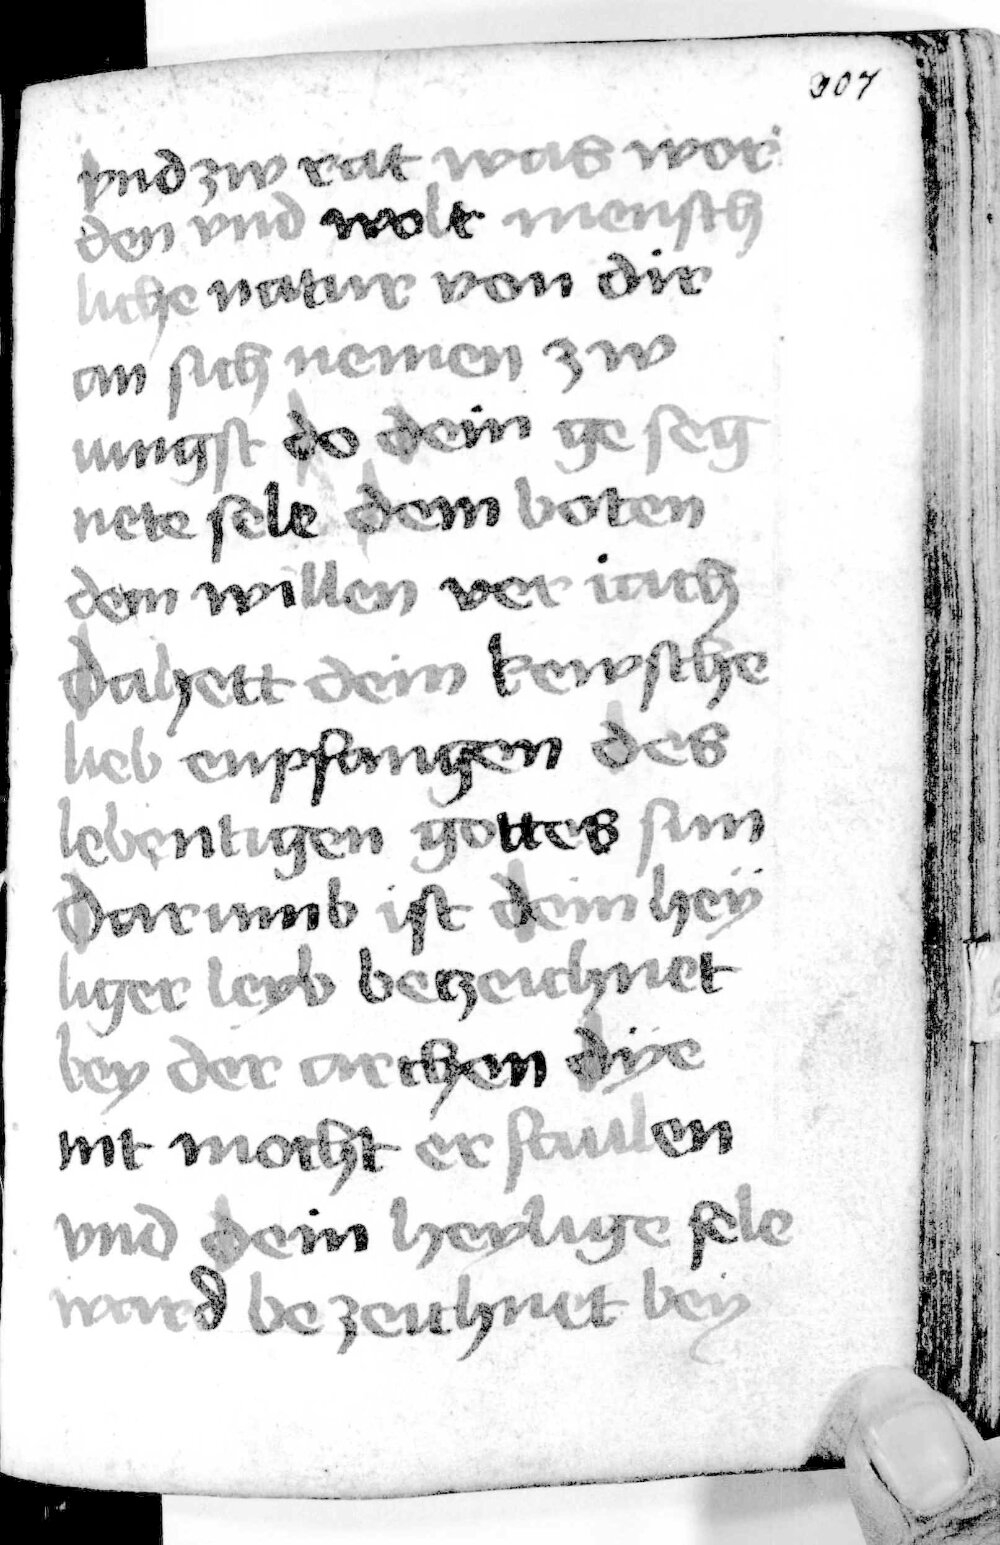 307
vnd zw rat was wor
den vnd wolt mensch
liche natur von dir
an sich nemen zw
iungst do dein ge seg
nete sele dem boten
dem willen ver iach
Da hett dein kewsche
lieb enpfangen des
lebentigen gottes sun
Darumb ist dein heÿ
liger leyb bezeichnet
bey der archen dÿe
nit mocht er faullen
vnd dein heylige sele
ward be zeichnet beÿ